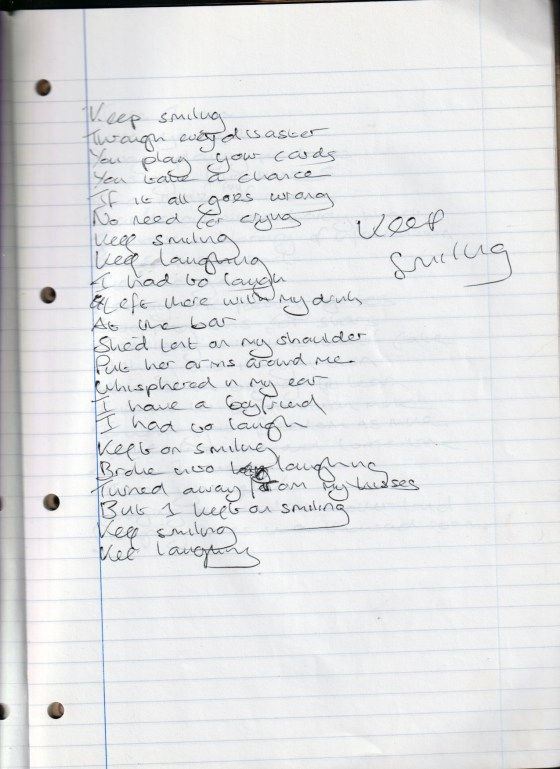 Keep smiling
Through every disaster
You play your cards
You take a chance
If it all goes wrong
No need for crying
Keep smiling
Keep laughing
I had to laugh
Left there with my drink
At the bar
She'd lent on my shoulder
Put her arms around me
Whisphered in my ear
I have a boyfriend
I had to laugh
Kept on smiling
Broke into laughing
Turned away from my kisses
But I kept on smiling
Keep smiling
Kee laughing
Keep
Smiling